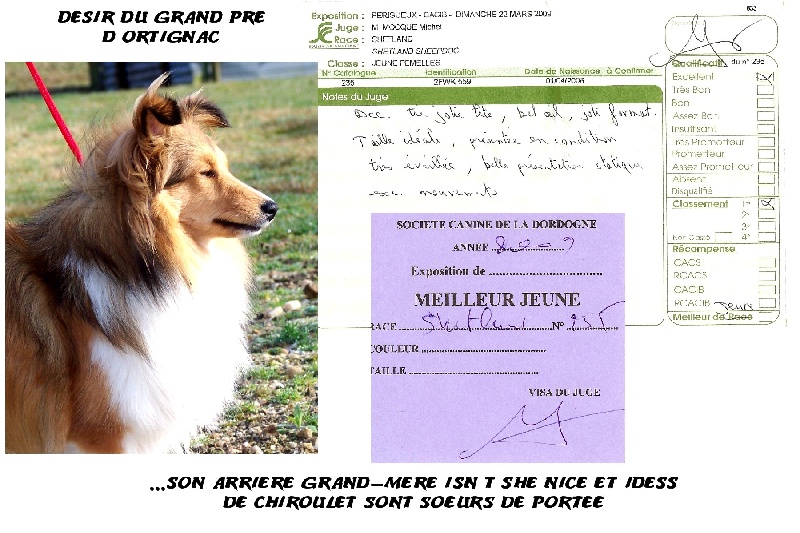 DESIR DU GRAND PRE
D ORTIGNAC
632
Exposition : PERIGUEUX - CACIB - DIMANCHE 22 MARS 2009
Juge : M. MOCQUE Michel
Race : SHETLAND
SHETLAND SHEEPDOG
Classe : JEUNE FEMELLES
N° Catalogue Identification Date de Naissance, à Confirmer
235 2FWK 659 01/04/2008
Notes du Juge
Exc. très jolie tête, bel œil, joli format.
Taille idéale, présentée en condition
très éveillée, belle présentation statique
exc. mouvements
Qualificatifs du n° 235
Excellent
Très Bon
Bon
Assez Bon
Insuffisant
Très Prometteur
Prometteur
Assez Prometteur
Absent
Disqualifié
Classement 1er
2e
3e
Non Classé 4e
Récompense
CACS
RCACS
CACIB
RCACIB
Jeune
Meilleur de Race
SOCIETE CANINE DE LA DORDOGNE
ANNEE 2009
Exposition de
MEILLEUR JEUNE
RACE Shetland N° 235
COULEUR
TAILLE
VISA DU JUGE
...SON ARRIERE GRAND-MERE ISN T SHE NICE ET IDESS
DE CHIROULET SONT SOEURS DE PORTEE